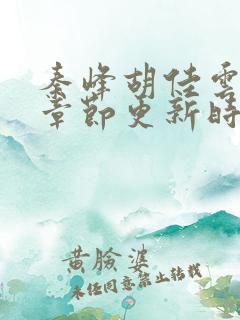 秦峰胡佳雲
章節更新時
黃臉婆
未經同意禁止轉載